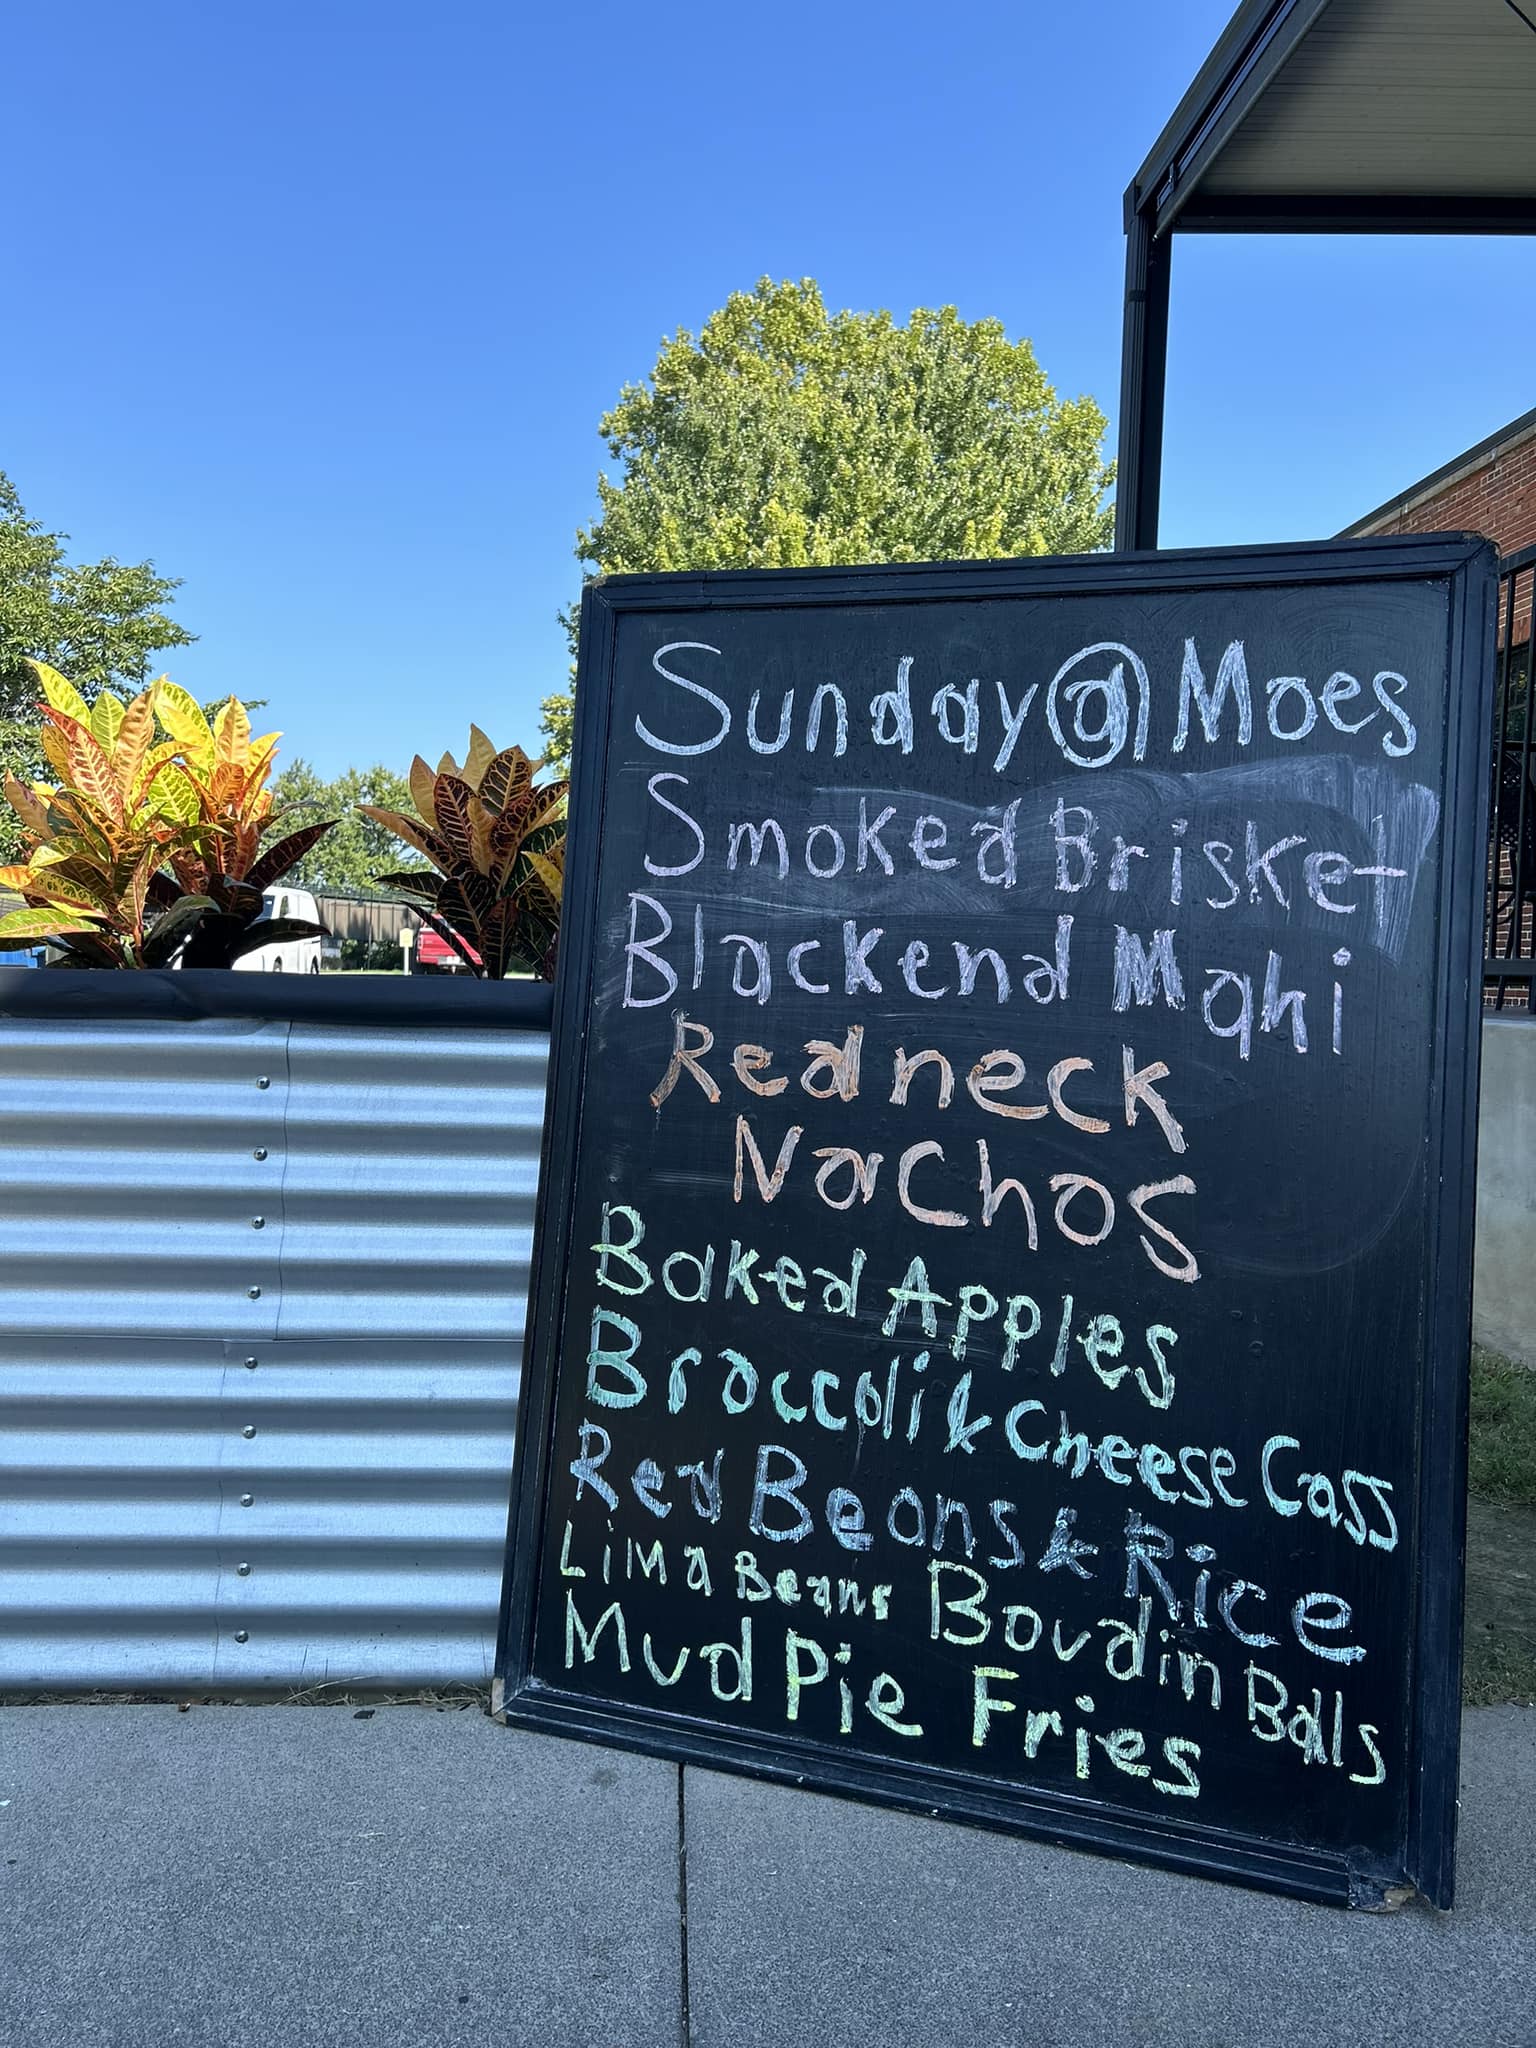 Sunday @ Moes
Smoked Brisket
Blackend Mahi
Redneck
Nachos
Baked Apples
Broccoli & Cheese Cass
Red Beans & Rice
Lima Beans Boudin Balls
Mud Pie Fries